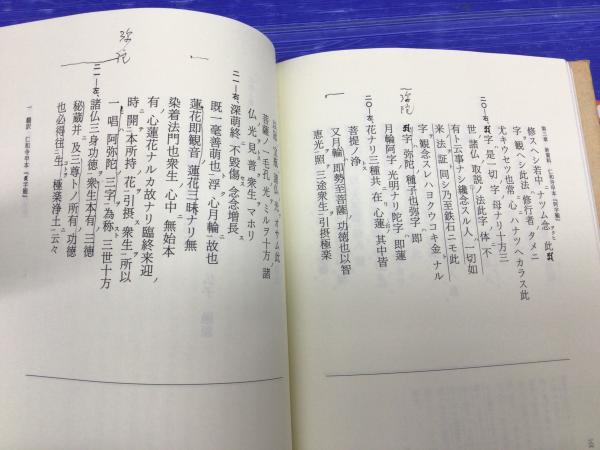 第三章 新資料 仁和寺甲本『阿字観』
二〇—右、修スヘシ若中ハナツム念ヲ此
字ヲ観ヘシ此法ハ修行者ノタメニ
尤キウセツ也常ニ心ニハナツヘカラス此
字ハ是一切ノ字ノ母ナリ十方三
世ノ諸仏ノ取説ノ法此字ノ体ニ不
有ト云事ナシ纔念スル人ハ一切如
来ノ法ヲ証ス同シ乃至鉄石ニモ此
字ヲ観念スレハヨクウコキ金トナル
二〇—左、字ハ弥陀ノ種子也弥字ハ即
月輪阿字ハ光明ナリ陀字ハ即蓮
花ナリ三種共ニ在リ心蓮ノ其中皆
菩提ノ浄
又月輪ハ即勢至菩薩ノ功徳也以智
恵光ヲ照三途衆生ヲ引摂極楽
弥陀
菩薩ノ一一ノ毛孔ノ光ヲミルヲ十方ノ諸
仏ノ光ト見ル善衆生ヲマホル
二一—右、深萌終ニ不毀傷セ念念増長ス
既ニ一毫ノ善萌也浮フ心月輪ニ故也
蓮花ハ即観音ノ蓮花三昧ナリ無
染着法門也衆生ノ心中ニ無始本
有ノ心蓮花ナルカ故ナリ臨終来迎ノ
時ハ開本所持ノ花ヲ引摂ス衆生ヲ所以
一タヒ唱レハ阿弥陀ノ三字ヲ為称スト三世十方
二一—左、諸仏三身功徳ヲ衆生本有ノ三徳
秘蔵并ニ及三尊トノ所有ノ功徳
也必得往生コトヲ極楽浄土ニ云々
一 翻訳 仁和寺甲本『真字観』
弥陀